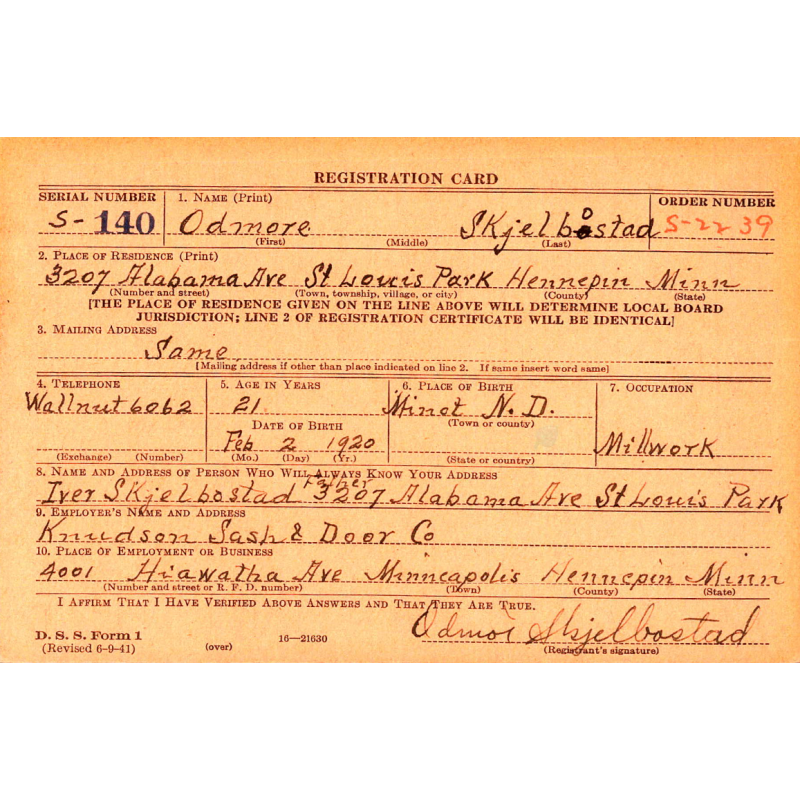 REGISTRATION CARD
SERIAL NUMBER 1. NAME (Print) ORDER NUMBER
S- 140 Odmore Skjelbostad S-22 39
(First) (Middle) (Last)
2. PLACE OF RESIDENCE (Print)
3207 Alabama Ave St Louis Park Hennepin Minn
(Number and street) (Town, township, village, or city) (County) (State)
[THE PLACE OF RESIDENCE GIVEN ON THE LINE ABOVE WILL DETERMINE LOCAL BOARD
JURISDICTION; LINE 2 OF REGISTRATION CERTIFICATE WILL BE IDENTICAL]
3. MAILING ADDRESS
Same
[Mailing address if other than place indicated on line 2. If same insert word same]
4. TELEPHONE 5. AGE IN YEARS 6. PLACE OF BIRTH 7. OCCUPATION
Wallnut 6062 21 Minot N.D.
DATE OF BIRTH (Town or county)
Feb 2 1920 Millwork
(Exchange) (Number) (Mo.) (Day) (Yr.) (State or country)
8. NAME AND ADDRESS OF PERSON WHO WILL ALWAYS KNOW YOUR ADDRESS
Father
Iver Skjelbostad 3207 Alabama Ave St Louis Park
9. EMPLOYER'S NAME AND ADDRESS
Knudson Sash & Door Co
10. PLACE OF EMPLOYMENT OR BUSINESS
4001 Hiawatha Ave Minneapolis Hennepin Minn
(Number and street or R. F. D. number) (Town) (County) (State)
I AFFIRM THAT I HAVE VERIFIED ABOVE ANSWERS AND THAT THEY ARE TRUE.
Odmor Skjelbostad
D. S. S. Form 1
(Revised 6-9-41) (over) 16—21630 (Registrant's signature)